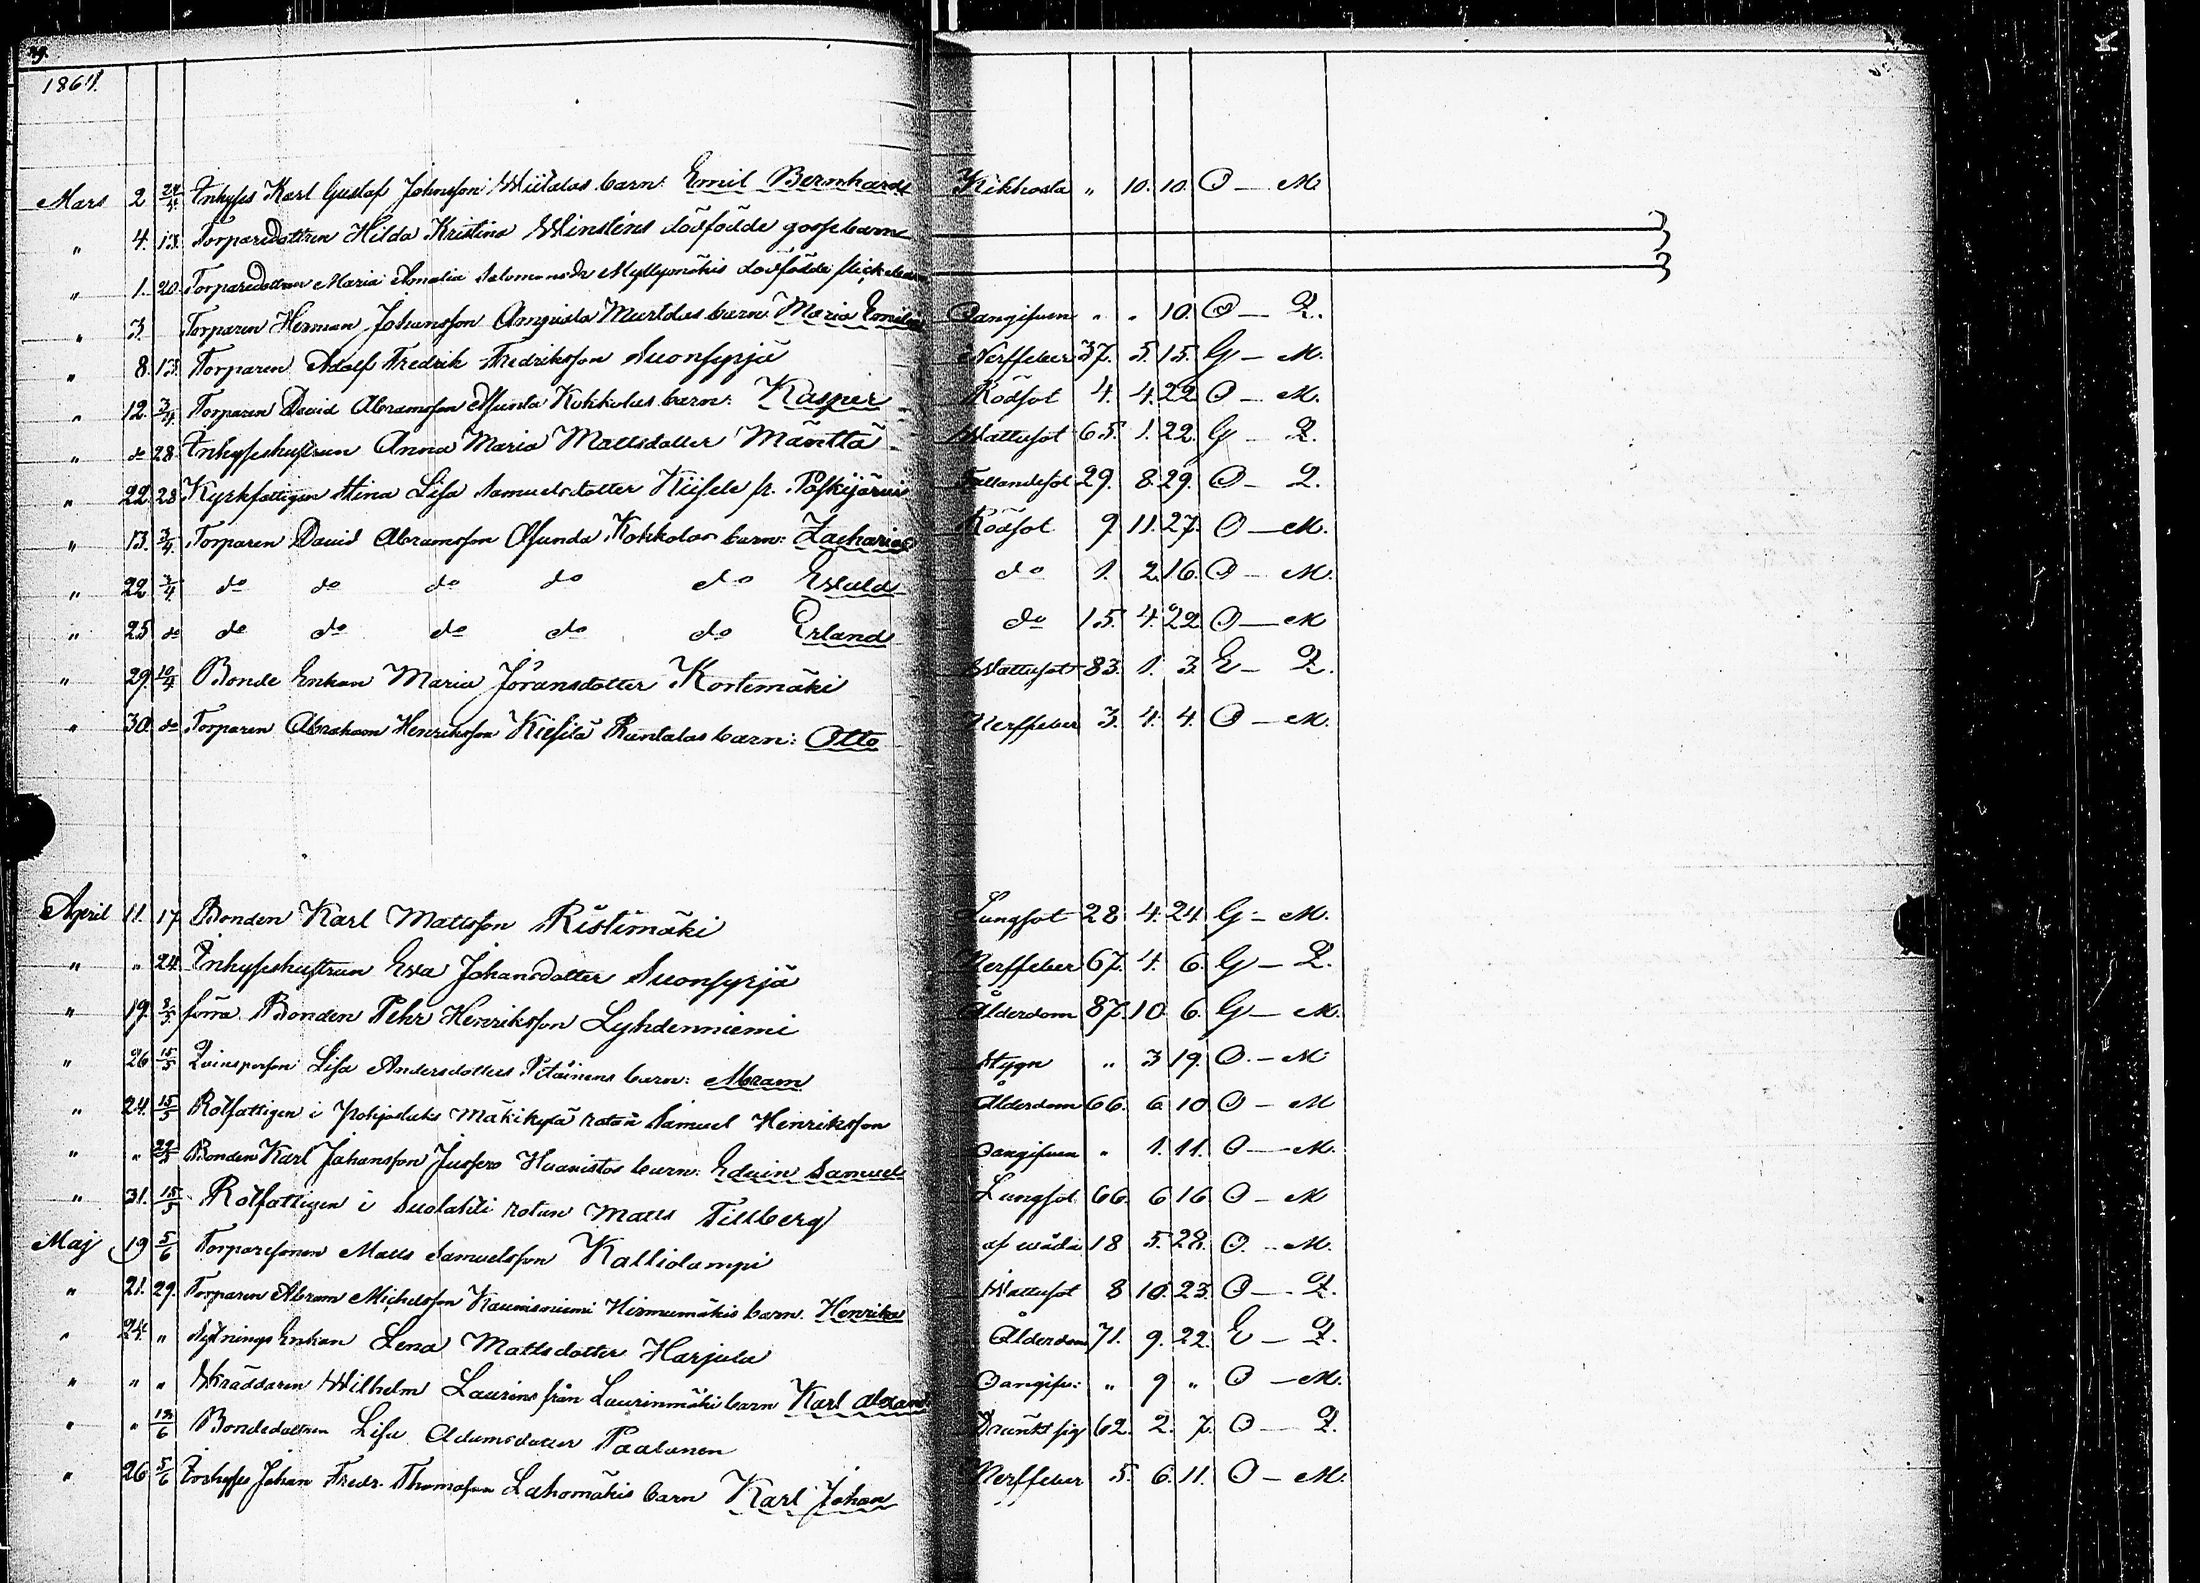 1864.
Mars 2 24/4 Inhyses Karl Gustaf Johnsson Wiitalas barn: Emil Bernhard Kikhosta " 10. 10. O — M.
" 4. 13. Torparedottren Hilda Kristina Winsténs dödfödde gossebarn
" 1. 20. Torparedottren Maria Amalia Salomonsdr Myllymäkis dödfödde flickebarn
" 3. Torparen Herman Johansson Murtolas barn: Maria Emilia Oangifven " " 10. O — Q.
" 8. 13. Torparen Adolf Fredrik Fredriksson Suonsyrjä Nerffeber 37. 5. 15. G — M.
" 12. 3/4 Torparen David Abramsson Asunta Kokkolas barn: Kasper Rödsot 4. 4. 22. O — M.
" do 28. Inhyseshustrun Anna Maria Mattsdotter Mänttä Wattusot 65. 1. 22. G — Q.
" 22. 28. Kyrkfattigen Stina Lisa Samuelsdotter Kiisele fr. Poskijärvi Fallandesot 29. 8. 29. O — Q.
" 13. 3/4 Torparen David Abramsson Asunda Kokkolas barn: Zacharias Rödsot 9. 11. 27. O — M.
" 22. 3/4 do do do do do Evald do 1. 2. 16. O — M.
" 25. do do do do do do Erland do 15. 4. 22. O — M
" 29. 10/4 Bonde Enkan Maria Jöransdotter Kortemäki Wattusot 83. 1. 3. E — Q.
" 30. do Torparen Abraham Henriksson Kiesilä Rantalas barn: Otto Nerffeber 3. 4. 4. O — M.
April 11. 17 Bonden Karl Mattsson Ristimäki Lungsot 28. 4. 24. G — M.
" " 24. Inhyseshustrun Eva Johansdotter Suonsyrjä Nerffeber 67. 4. 6. G — Q.
" 19. 8/5 förra Bonden Pehr Henriksson Lyhdenniemi Ålderdom 87. 10. 6. G — M.
" 26 15/5 Qvinsperson Lisa Andersdotters Pitäinens barn: Abram Stygn " 3 19. O. — M.
" 24. 15/5 Rotfattigen i Pohjoslahs Mäkikylä rotan Samuel Henriksson Ålderdom 66. 6. 10. O — M
" " 22/5 Bonden Karl Johansson Jusfers Huanistos barn: Edvin Samuel Oangifven " 1. 11. O — M.
" 31. 15/5 Rotfattigen i Suolahti rotan Matts Tillberg Lungsot 66. 6 16 O — M
Maj 19 5/6 Torparesonen Matts Samuelsson Kalliolampi af våda 18 5. 28. O. — M.
" 21. 29. Torparen Abram Michelsson Kaunisniemi Hirmumäkis barn. Henrika Wattusot 8 10. 23. O — Q.
" 24. " Sytnings Enkan Lena Mattsdotter Harjula Ålderdom 71. 9. 22. E — Q.
" " " Skräddaren Wilhelm Laurins från Laurinmäki barn Karl Oangifv: " 9 " O — M.
" " 13/6 Bondedottren Lisa Adamsdotter Paalanen Dränkt sig 62. 2. 7. O — Q.
" 26 5/6 Inhyses Johan Fredr. Thomasson Lahomäkis barn Karl Johan Nerffeber 5. 6. 11. O — M.